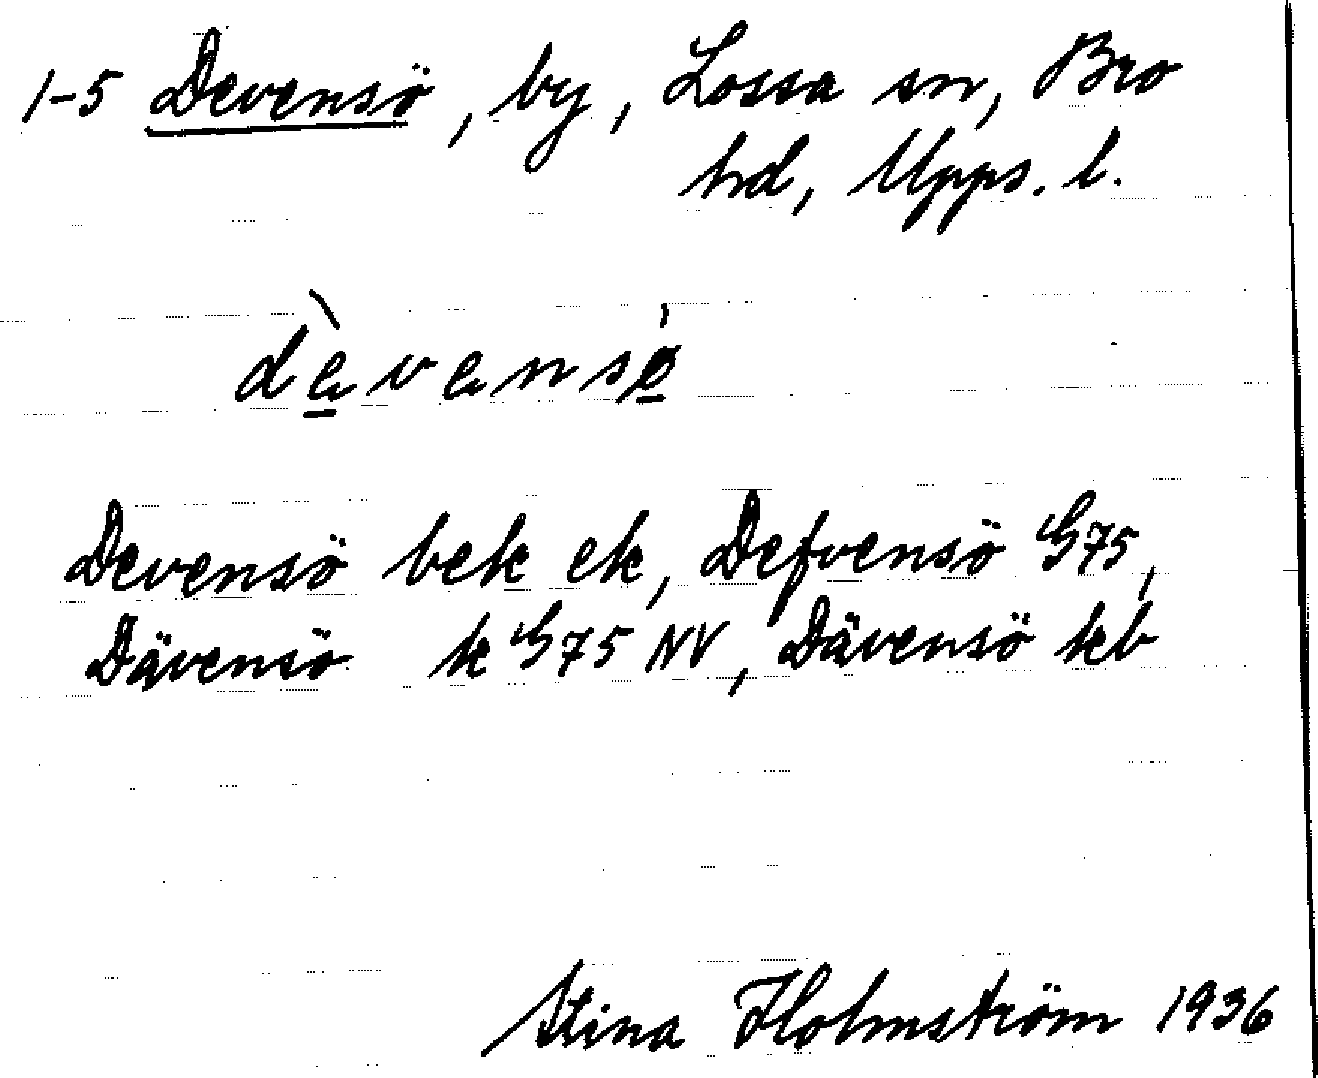 1-5 Devensö, by, Lossa sn, Bro
hd, Upps. l.
dèvensø̀
Devensö bek ek, Defvensö G75,
Dävensö k G75 NV, Dävensö kb
Stina Holmström 1936